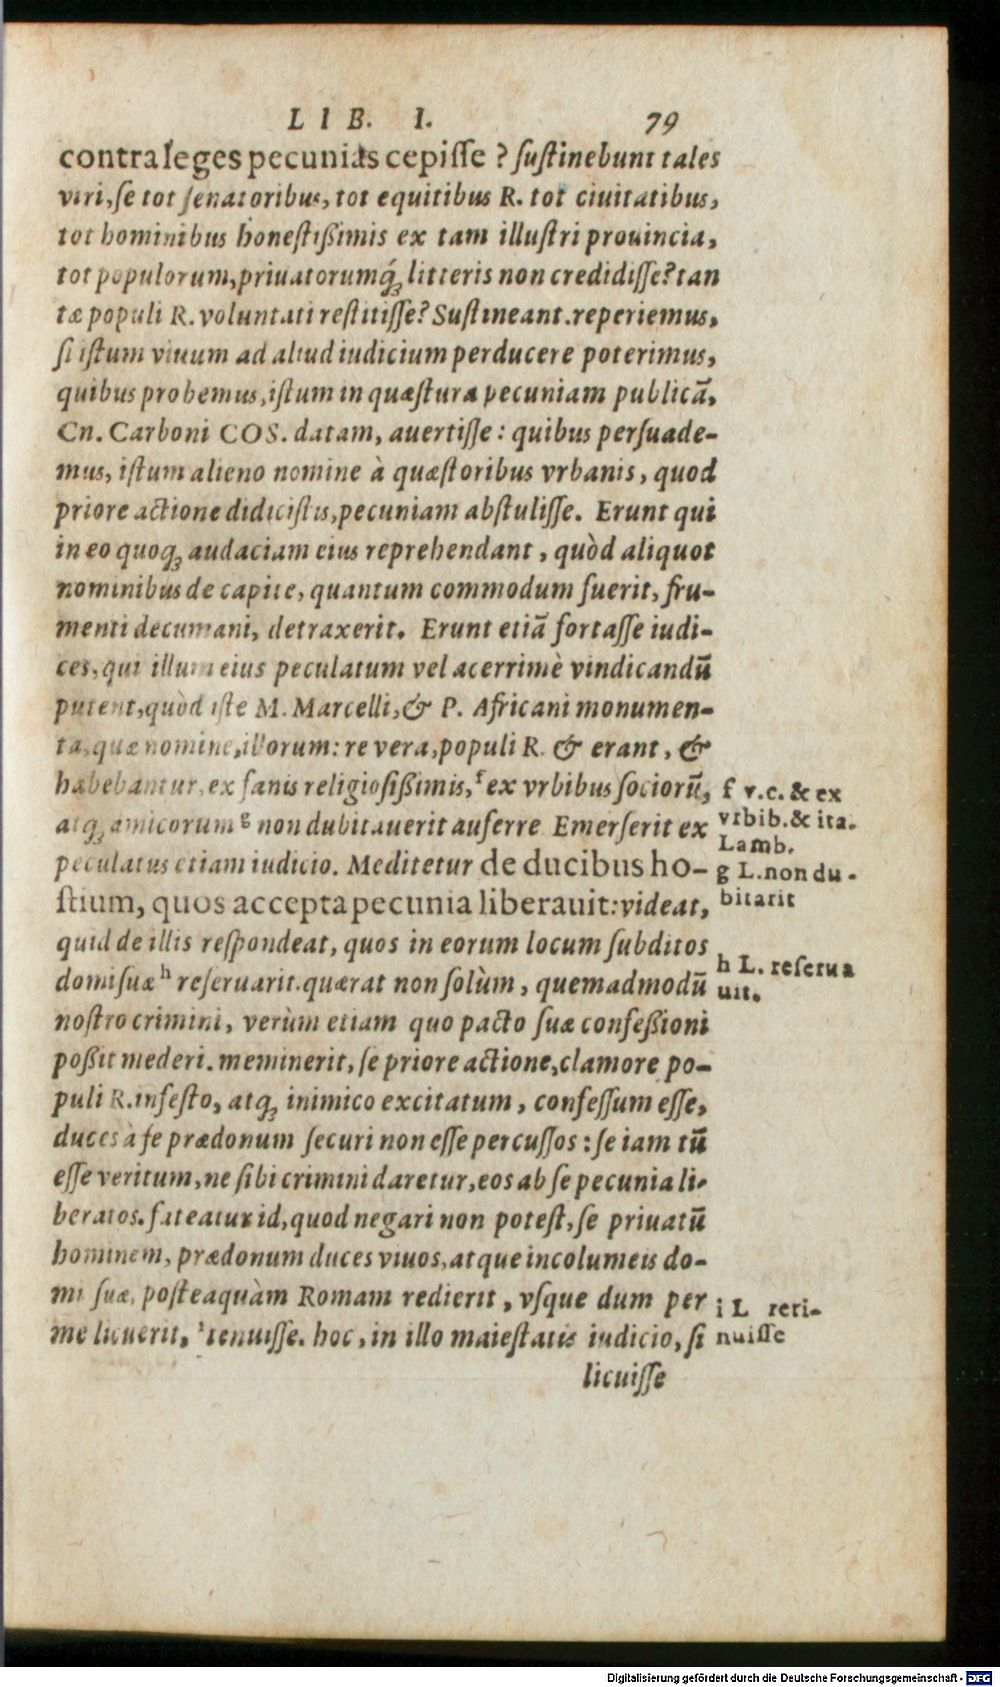 LIB. I. 79
contra leges pecunias cepisse ? sustinebunt tales
viri, se tot senatoribus, tot equitibus R. tot ciuitatibus,
tot hominibus honestißimis ex tam illustri prouincia,
tot populorum, priuatorumq́ꝫ litteris non credidisse? tan
tæ populi R. voluntati restitisse? Sustineant. reperiemus,
si istum viuum ad aliud iudicium perducere poterimus,
quibus probemus, istum in quæstura pecuniam publicã,
Cn. Carboni COS. datam, auertisse: quibus persuade-
mus, istum alieno nomine à quæstoribus vrbanis, quod
priore actione didicistis, pecuniam abstulisse. Erunt qui
in eo quoqꝫ audaciam eius reprehendant, quòd aliquot
nominibus de capite, quantum commodum fuerit, fru-
menti decumani, detraxerit. Erunt etiã fortasse iudi-
ces, qui illum eius peculatum vel acerrimè vindicandũ
putent, quòd iste M. Marcelli, & P. Africani monumen-
ta, quæ nomine, illorum: re vera, populi R. & erant, &
habebantur, ex fanis religiosißimis, f ex vrbibus sociorũ,
atqꝫ amicorum g non dubitauerit auferre. Emerserit ex
peculatus etiam iudicio. Meditetur de ducibus ho-
stium, quos accepta pecunia liberauit: videat,
quid de illis respondeat, quos in eorum locum subditos
domi suæ h reseruarit. quærat non solùm, quemadmodũ
nostro crimini, verùm etiam quo pacto suæ confeßioni
poßit mederi. meminerit, se priore actione, clamore po-
puli R. infesto, atqꝫ inimico excitatum, confessum esse,
duces à se prædonum securi non esse percussos: se iam tũ
esse veritum, ne sibi crimini daretur, eos ab se pecunia li-
beratos. fateatur id, quod negari non potest, se priuatũ
hominem, prædonum duces viuos, atque incolumeis do-
mi suæ, posteaquàm Romam redierit, vsque dum per
me licuerit, i tenuisse. hoc, in illo maiestatis iudicio, si
licuisse
f v.c. & ex
vrbib. & ita.
Lamb.
g L. non du-
bitarit
h L. reserua
uit.
i L reti-
nuisse
Digitalisierung gefördert durch die Deutsche Forschungsgemeinschaft - DFG